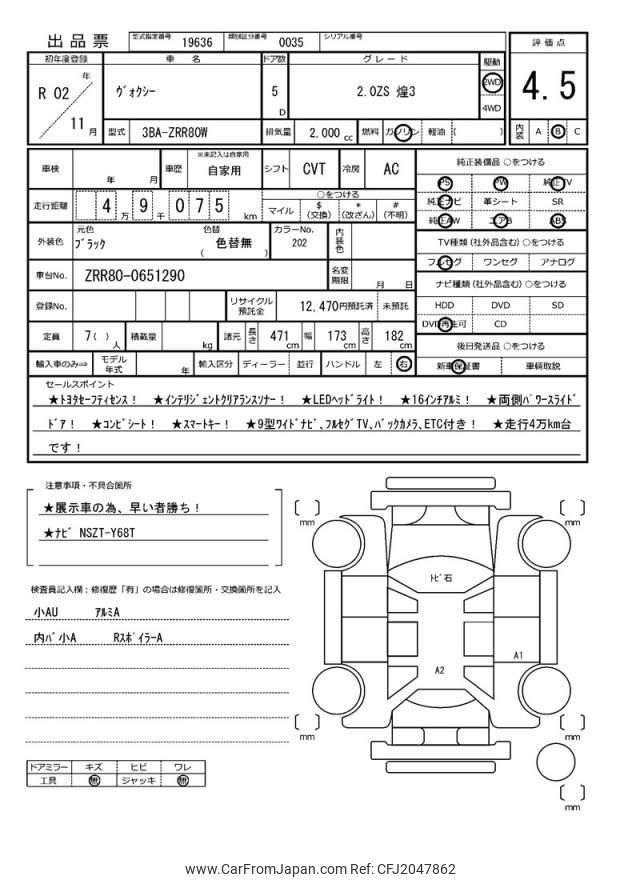 出品票 型式指定番号 19636 類別区分番号 0035 シリアル番号
評価点
初年度登録 車名 ドア数 グレード 駆動
R 02 年 11 月
ヴォクシー 5 D 2.0ZS 煌3 2WD 4WD
4.5
型式 3BA-ZRR80W 排気量 2,000 cc 燃料 ガソリン 軽油 ( )
内装 A B C
車検 年 月 車歴 ※未記入は自家用 自家用 シフト CVT 冷房 AC
走行距離 4 万 9 千 0 7 5 km
○をつける
マイル $ (交換) * (改ざん) # (不明)
外装色 元色 ブラック 色替 ( 色替無 ) カラーNo. 202 内装色
車台No. ZRR80-0651290 名変期限 月 日
登録No. リサイクル預託金 12,470円預託済 未預託
定員 7( ) 人 積載量 kg 諸元 長さ 471 cm 幅 173 cm 高さ 182 cm
輸入車のみ⇒ モデル年式 年 輸入区分 ディーラー 並行 ハンドル 左 右
純正装備品 ○をつける
PS PW 純正TV
純正ナビ 革シート SR
純正AW エアB ABS
TV種類 (社外品含む) ○をつける
フルセグ ワンセグ アナログ
ナビ種類 (社外品含む) ○をつける
HDD DVD SD
DVD再生可 CD
後日発送品 ○をつける
新車保証書 車輌取説
セールスポイント
★トヨタセーフティセンス! ★インテリジェントクリアランスソナー! ★LEDヘッドライト! ★16インチアルミ! ★両側パワースライド
ドア! ★コンビシート! ★スマートキー! ★9型ワイドナビ、フルセグTV、バックカメラ、ETC付き! ★走行4万km台
です!
注意事項・不具合箇所
★展示車の為、早い者勝ち!
★ナビ NSZT-Y68T
検査員記入欄:修復歴「有」の場合は修復箇所・交換箇所を記入
小AU アルミA
内バ小A RスポイラーA
ドアミラー キズ ヒビ ワレ
工具 無 ジャッキ 無
mm
mm
トビ石
A1
A2
mm
mm
mm
www.CarFromJapan.com Ref: CFJ2047862